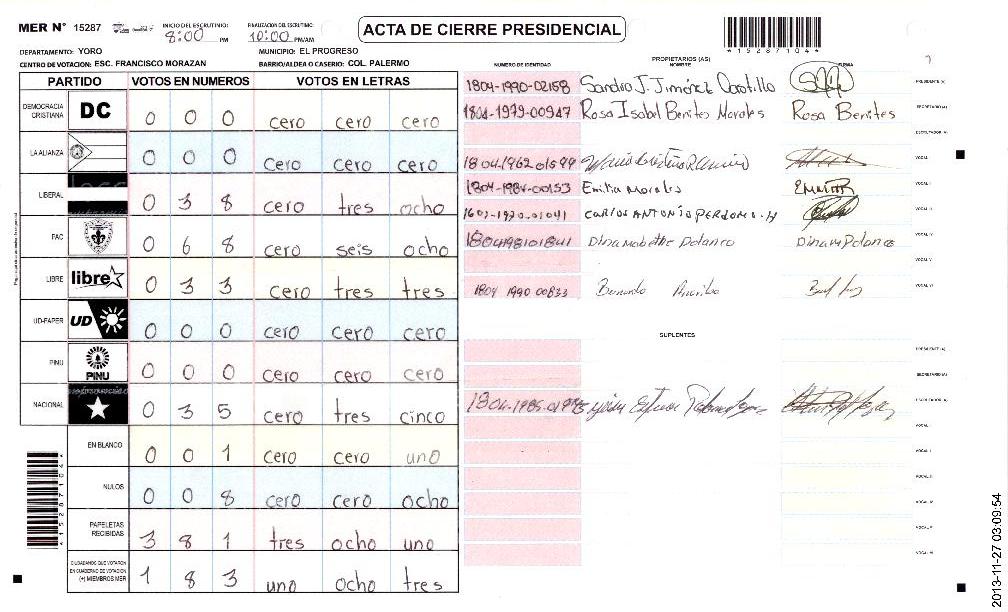 MER N° 15287 INICIO DEL ESCRUTINIO: 8:00 PM FINALIZACION DEL ESCRUTINIO: 10:00 PM/AM ACTA DE CIERRE PRESIDENCIAL
*15287104*
DEPARTAMENTO: YORO MUNICIPIO: EL PROGRESO
CENTRO DE VOTACION: ESC. FRANCISCO MORAZAN BARRIO/ALDEA O CASERIO: COL. PALERMO
PARTIDO VOTOS EN NUMEROS VOTOS EN LETRAS
DEMOCRACIA CRISTIANA DC 0 0 0 cero cero cero
LA ALIANZA 0 0 0 cero cero cero
LIBERAL 0 3 8 cero tres ocho
PAC 0 6 8 cero seis ocho
LIBRE libre 0 3 3 cero tres tres
UD-FAPER UD 0 0 0 cero cero cero
PINU PINU 0 0 0 cero cero cero
NACIONAL 0 3 5 cero tres cinco
EN BLANCO 0 0 1 cero cero uno
NULOS 0 0 8 cero cero ocho
PAPELETAS RECIBIDAS 3 8 1 tres ocho uno
CIUDADANOS QUE VOTARON EN CUADERNO DE VOTACION (+) MIEMBROS MER 1 8 3 uno ocho tres
PROPIETARIOS (AS)
NUMERO DE IDENTIDAD NOMBRE FIRMA
1804-1990-02158 Sandra J. Jiménez PRESIDENTE (A)
1804-1979-00947 Rosa Isabel Benites Morales Rosa Benites SECRETARIO (A)
ESCRUTADOR (A)
1804-1962-01599 VOCAL
1804-1984-00153 Emilia Morales VOCAL I
1601-1970-01041 CARLOS ANTONIO PERDOMO H VOCAL II
1804198101841 Dina Polanco Dina M Polanco VOCAL IV
VOCAL V
1804 1990 00833 Bernardo VOCAL VI
SUPLENTES
PRESIDENTE (A)
SECRETARIO (A)
ESCRUTADOR (A)
VOCAL
VOCAL I
VOCAL II
VOCAL III
VOCAL V
VOCAL VI
*15287104*
2013-11-27 03:09:54